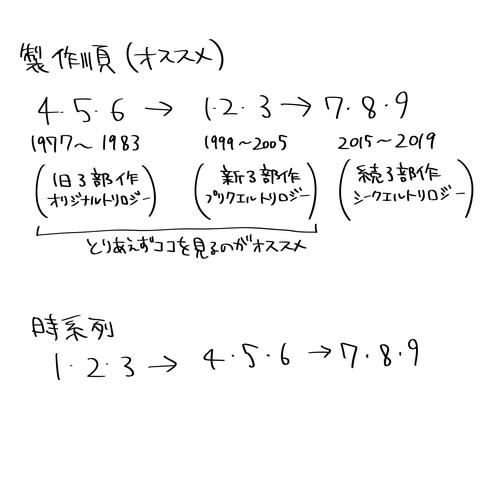 製作順(オススメ)
4・5・6 → 1・2・3 → 7・8・9
1977〜1983 1999〜2005 2015〜2019
(旧3部作 オリジナルトリロジー) (新3部作 プリクエルトリロジー) (続3部作 シークエルトリロジー)
とりあえずココを見るのがオススメ
時系列
1・2・3 → 4・5・6 → 7・8・9